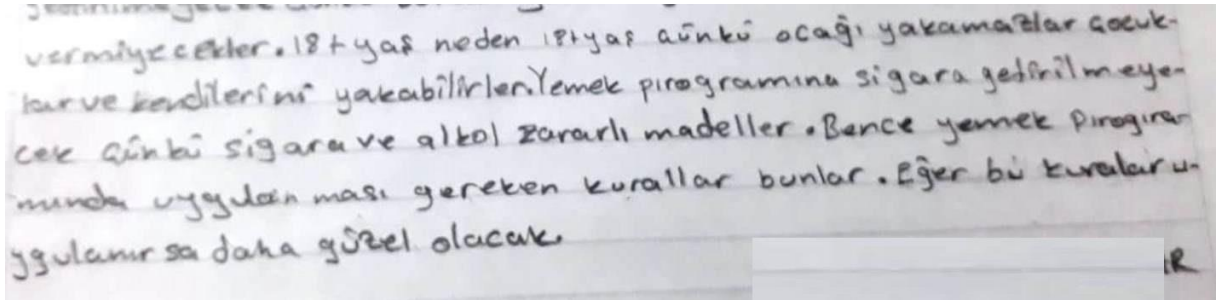 vermiyecekler. 18+yaş neden 18+yaş cünkü ocağı yakamazlar cocuk-
lar ve kendilerini yakabilirler. Yemek pirogramına sigara getirilmeye-
cek cünkü sigara ve alkol zararlı madeller. Bence yemek pirogira-
mında uygulanması gereken kurallar bunlar. Eğer bu kuralar u-
ygulanırsa daha güzel olacak.
R